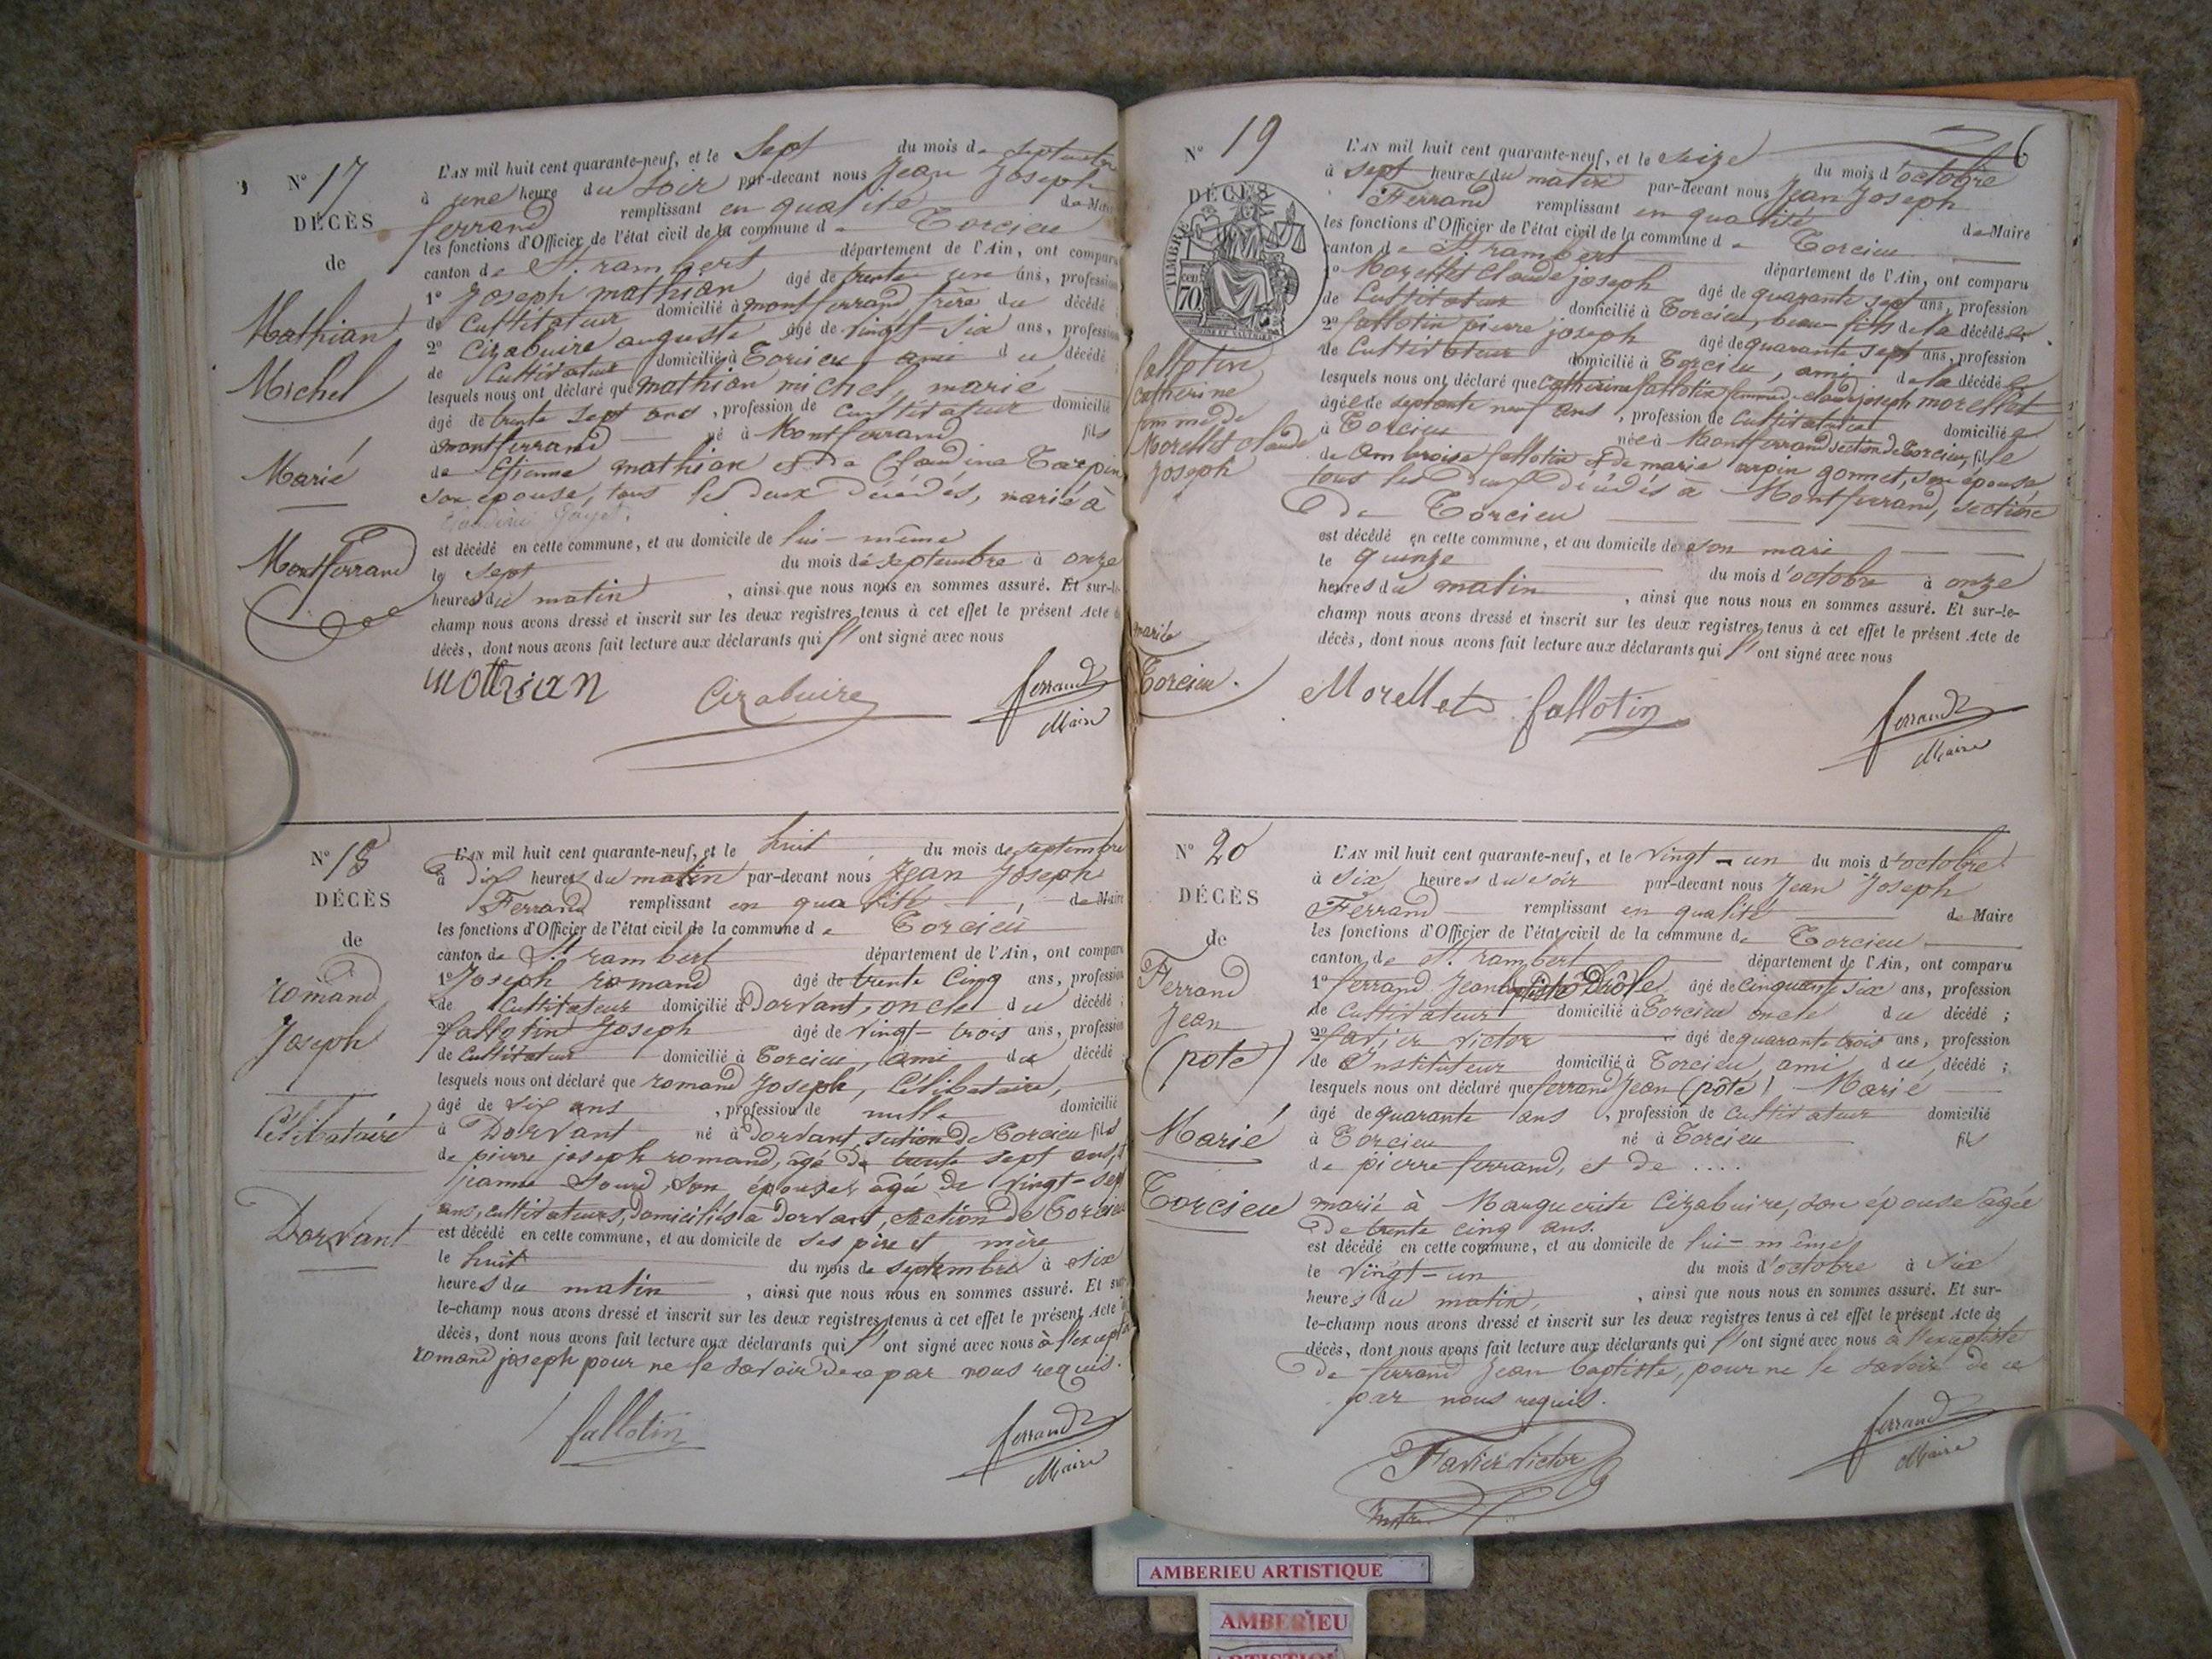 N° 17
DÉCÈS
de
Mathian
Michel
Marié
Montferrand
L'AN mil huit cent quarante-neuf, et le Sept du mois de septembre
à une heure du soir par-devant nous Jean Joseph
ferrand remplissant en qualité de Maire
les fonctions d'Officier de l'état civil de la commune de Torcieu
canton de St. rambert département de l'Ain, ont comparu
1° Joseph mathian âgé de trente un ans, profession
de Cultivateur domicilié à montferrand, frère du décédé ;
2° Cizabuire auguste âgé de vingt-six ans, profession
de Cultivateur domicilié à Torcieu ami du décédé
lesquels nous ont déclaré que mathian michel, marié
âgé de trente sept ans, profession de cultivateur domicilié
à montferrand né à Montferrand fils
de Etienne mathian et de Claudine Tarpin
son épouse, tous les deux décédés, marié à
est décédé en cette commune, et au domicile de lui-même
le sept du mois de septembre à onze
heures du matin, ainsi que nous nous en sommes assuré. Et sur-le-
champ nous avons dressé et inscrit sur les deux registres tenus à cet effet le présent Acte de
décès, dont nous avons fait lecture aux déclarants qui l'ont signé avec nous
mathian Cizabuire ferrand
Maire
N° 18
DÉCÈS
de
romand
Joseph
Célibataire
Dorvant
L'AN mil huit cent quarante-neuf, et le huit du mois de septembre
à dix heures du matin par-devant nous Jean Joseph
Ferrand remplissant en qualité de Maire
les fonctions d'Officier de l'état civil de la commune de Torcieu
canton de St. rambert département de l'Ain, ont comparu
1° Joseph romand âgé de trente cinq ans, profession
de Cultivateur domicilié à Dorvant, oncle du décédé ;
2° fallotin Joseph âgé de vingt-trois ans, profession
de Cultivateur domicilié à Torcieu, ami du décédé
lesquels nous ont déclaré que romand Joseph, Célibataire,
âgé de dix ans, profession de nulle domicilié
à Dorvant né à Dorvant, section de Torcieu fils
de pierre joseph romand, âgé de trente sept ans, et
jeanne Sourd, son épouse, âgée de vingt-sept
ans, cultivateurs, domiciliés à Dorvant, section de Torcieu
est décédé en cette commune, et au domicile de ses père et mère
le huit du mois de septembre à six
heures du matin, ainsi que nous nous en sommes assuré. Et sur-
le-champ nous avons dressé et inscrit sur les deux registres tenus à cet effet le présent Acte de
décès, dont nous avons fait lecture aux déclarants qui l'ont signé avec nous à l'exception
romand joseph pour ne le savoir de ce par nous requis.
fallotin ferrand
Maire
6
N° 19
DÉCÈS
TIMBRE
cen 70
fallotin
Catherine
femme de
Morellet Claude
Joseph
mariée
Torcieu.
L'AN mil huit cent quarante-neuf, et le seize du mois d'octobre
à sept heures du matin par-devant nous Jean Joseph
Ferrand remplissant en qualité de Maire
les fonctions d'Officier de l'état civil de la commune de Torcieu
canton de St. rambert département de l'Ain, ont comparu
1° Morellet Claude joseph âgé de quarante sept ans, profession
de Cultivateur domicilié à Torcieu, beau-fils de la décédée ;
2° fallotin pierre joseph âgé de quarante sept ans, profession
de Cultivateur domicilié à Torcieu, ami de la décédée
lesquels nous ont déclaré que Catherine fallotin femme claude joseph morellet
âgée de septante neuf ans, profession de Cultivatrice domiciliée
à Torcieu née à Montferrand section de Torcieu, fille
de Ambroise fallotin et de marie arpin gonnet, son épouse
tous les deux décédés à Montferrand, section
de Torcieu
est décédé en cette commune, et au domicile de son mari
le quinze du mois d'octobre à onze
heures du matin, ainsi que nous nous en sommes assuré. Et sur-le-
champ nous avons dressé et inscrit sur les deux registres tenus à cet effet le présent Acte de
décès, dont nous avons fait lecture aux déclarants qui l'ont signé avec nous
Morellet fallotin ferrand
Maire
N° 20
DÉCÈS
de
Ferrand
Jean
(pote)
Marié
Torcieu
L'AN mil huit cent quarante-neuf, et le vingt-un du mois d'octobre
à six heures du soir par-devant nous Jean Joseph
Ferrand remplissant en qualité de Maire
les fonctions d'Officier de l'état civil de la commune de Torcieu
canton de St. rambert département de l'Ain, ont comparu
1° ferrand Jean baptiste Drôle âgé de cinquante six ans, profession
de Cultivateur domicilié à Torcieu oncle du décédé ;
2° favier victor âgé de quarante trois ans, profession
de Instituteur domicilié à Torcieu, ami du décédé ;
lesquels nous ont déclaré que ferrand Jean (pote) Marié
âgé de quarante ans, profession de Cultivateur domicilié
à Torcieu né à Torcieu fils
de pierre ferrand, et de ....
marié à Marguerite Cizabuire, son épouse âgée
de trente cinq ans.
est décédé en cette commune, et au domicile de lui-même
le vingt-un du mois d'octobre à six
heures du matin, ainsi que nous nous en sommes assuré. Et sur-
le-champ nous avons dressé et inscrit sur les deux registres tenus à cet effet le présent Acte de
décès, dont nous avons fait lecture aux déclarants qui l'ont signé avec nous à
de ferrand Jean baptiste, pour ne le savoir de ce
par nous requis.
Favier Victor ferrand
Maire
AMBERIEU ARTISTIQUE
AMBERIEU
ARTISTIQUE